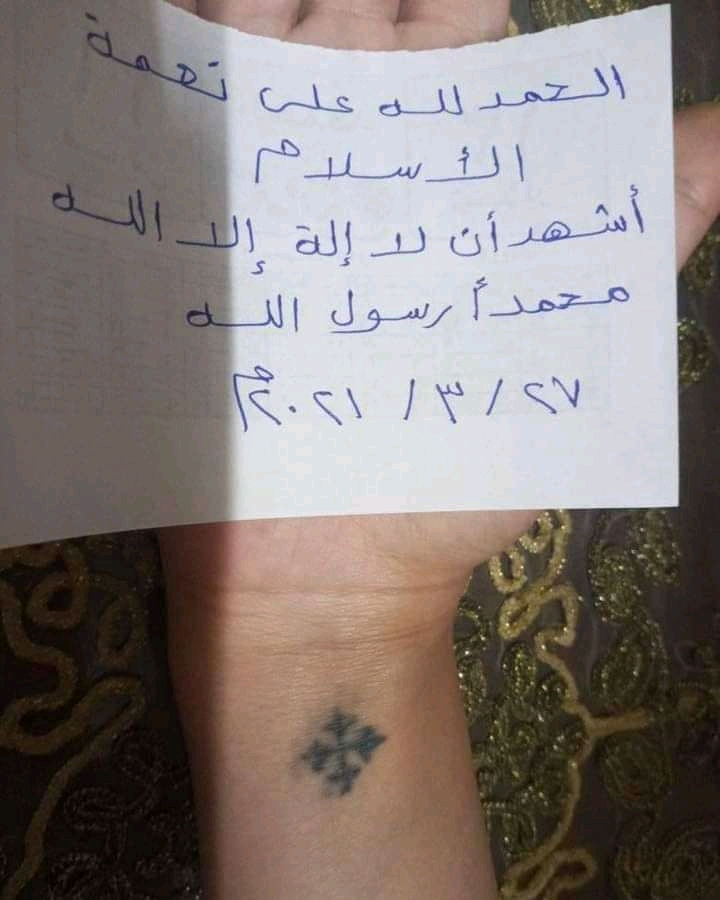 الحمد لله على نعمة
الأسلام
أشهد أن لا إلة إلا الله
محمداً رسول الله
٢٧ / ٣ / ٢٠٢١م